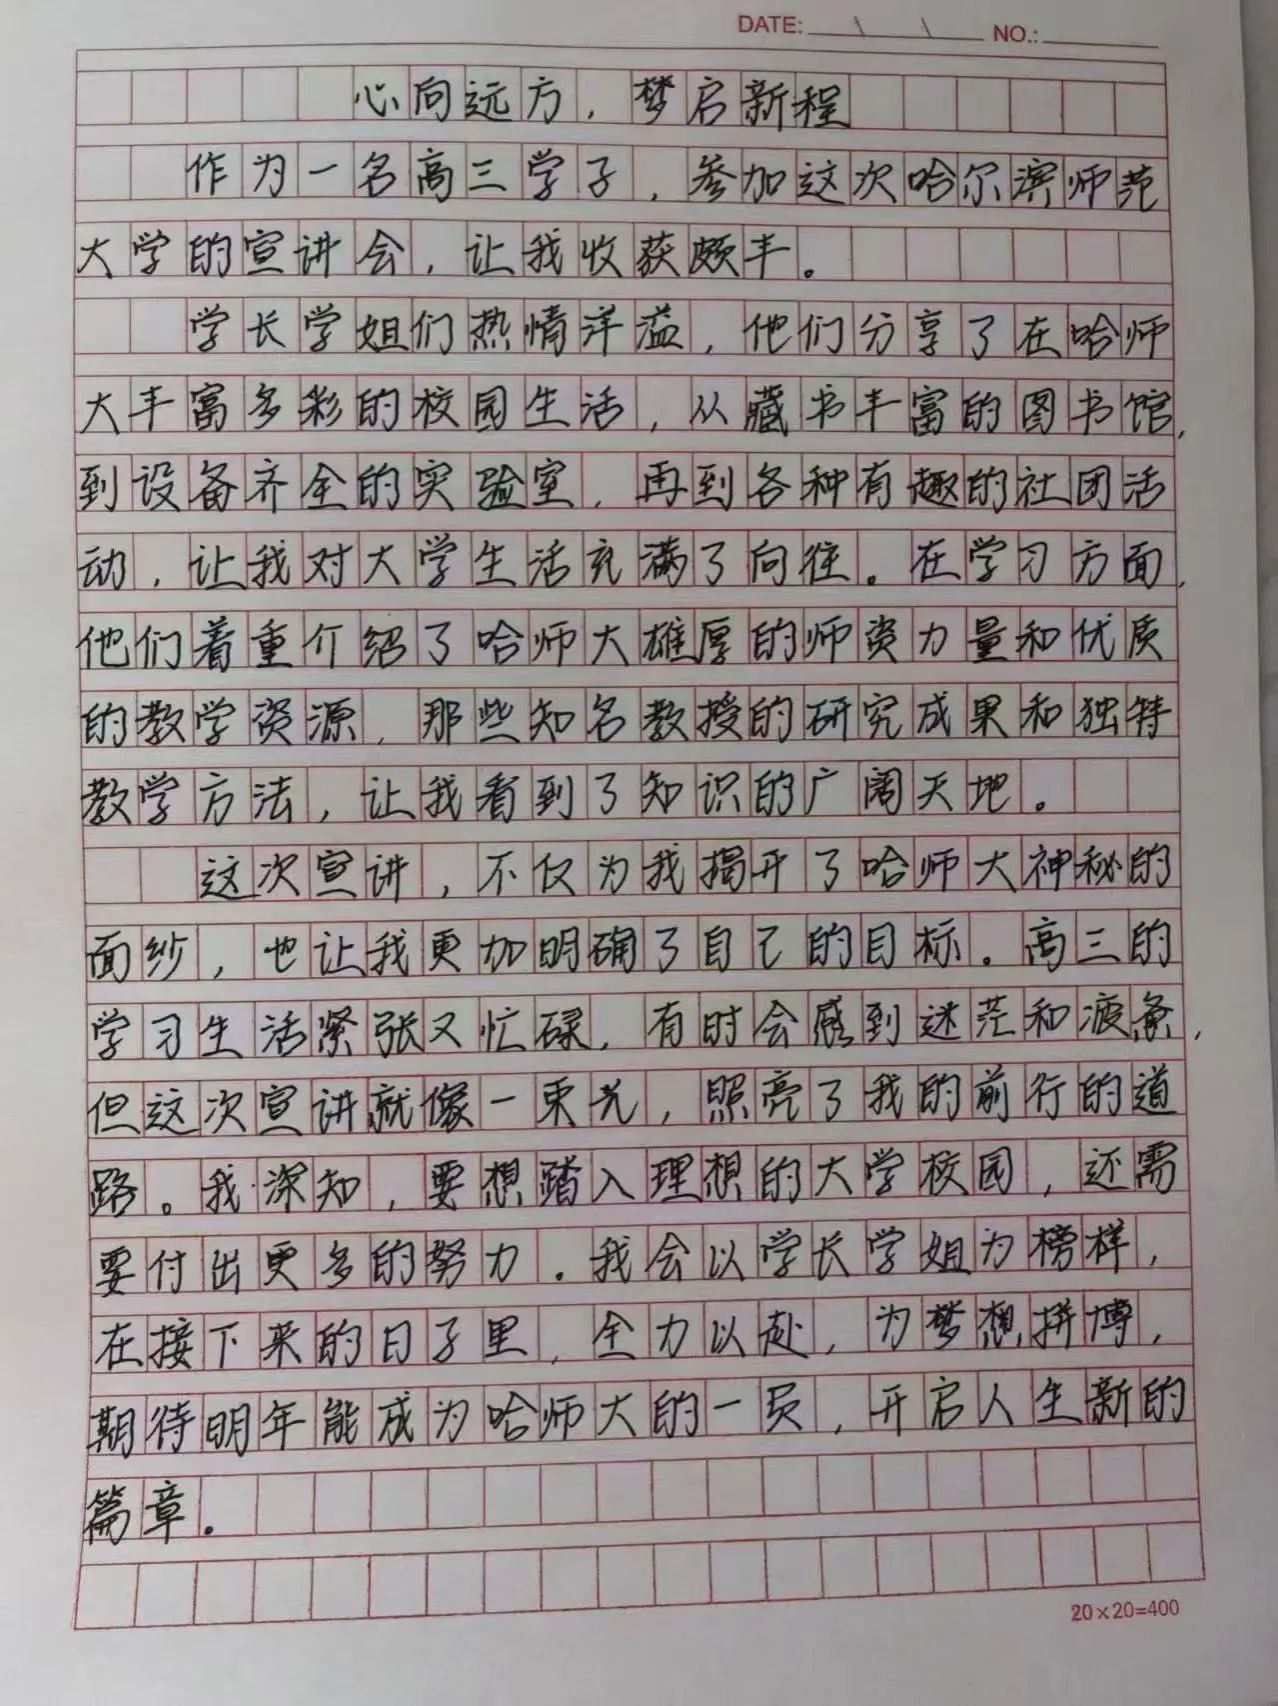 DATE: \ \ NO.:
心向远方，梦启新程
作为一名高三学子，参加这次哈尔滨师范
大学的宣讲会，让我收获颇丰。
学长学姐们热情洋溢，他们分享了在哈师
大丰富多彩的校园生活，从藏书丰富的图书馆，
到设备齐全的实验室，再到各种有趣的社团活
动，让我对大学生活充满了向往。在学习方面，
他们着重介绍了哈师大雄厚的师资力量和优质
的教学资源，那些知名教授的研究成果和独特
教学方法，让我看到了知识的广阔天地。
这次宣讲，不仅为我揭开了哈师大神秘的
面纱，也让我更加明确了自己的目标。高三的
学习生活紧张又忙碌，有时会感到迷茫和疲惫，
但这次宣讲就像一束光，照亮了我的前行的道
路。我深知，要想踏入理想的大学校园，还需
要付出更多的努力。我会以学长学姐为榜样，
在接下来的日子里，全力以赴，为梦想拼博，
期待明年能成为哈师大的一员，开启人生新的
篇章。
20×20=400